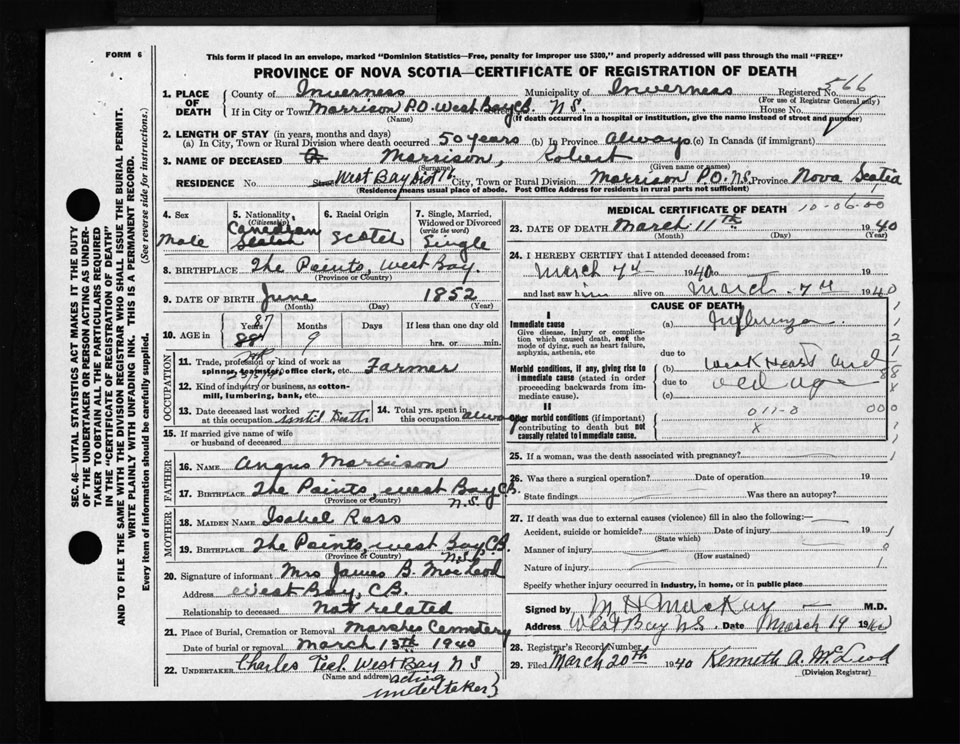 FORM 6
This form if placed in an envelope, marked "Dominion Statistics—Free, penalty for improper use $300," and properly addressed will pass through the mail "FREE"
PROVINCE OF NOVA SCOTIA—CERTIFICATE OF REGISTRATION OF DEATH
SEC. 46—VITAL STATISTICS ACT MAKES IT THE DUTY
OF THE UNDERTAKER OR PERSON ACTING AS UNDER-
TAKER TO OBTAIN ALL THE PARTICULARS REQUIRED
IN THE "CERTIFICATE OF REGISTRATION OF DEATH"
AND TO FILE THE SAME WITH THE DIVISION REGISTRAR WHO SHALL ISSUE THE BURIAL PERMIT.
WRITE PLAINLY WITH UNFADING INK. THIS IS A PERMANENT RECORD.
Every item of information should be carefully supplied. (See reverse side for instructions.)
1. PLACE OF DEATH County of Inverness Municipality of Inverness Registered No. 566
(For use of Registrar General only)
If in City or Town Morrison P.O. West Bay C.B. N.S. House No.
(Name) (If death occurred in a hospital or institution, give the name instead of street and number)
2. LENGTH OF STAY (in years, months and days)
(a) In City, Town or Rural Division where death occurred 50 years (b) In Province Always (c) In Canada (if immigrant)
3. NAME OF DECEASED Morrison, Robert
(Surname) (Given name or names)
RESIDENCE No. Street West Bay Dist 16 City, Town or Rural Division Morrison P.O. N.S. Province Nova Scotia
(Residence means usual place of abode. Post Office Address for residents in rural parts not sufficient)
4. Sex Male
5. Nationality (Citizenship) Canadian Scotch
6. Racial Origin Scotch
7. Single, Married, Widowed or Divorced (write the word) Single
8. BIRTHPLACE The Points, West Bay.
(Province or Country)
9. DATE OF BIRTH June 1852
(Month) (Day) (Year)
10. AGE in Years 87 Months 9 Days If less than one day old hrs. or min.
OCCUPATION
11. Trade, profession or kind of work as spinner, teamster, office clerk, etc. Farmer
12. Kind of industry or business, as cotton-mill, lumbering, bank, etc.
13. Date deceased last worked at this occupation Until Death
14. Total yrs. spent in this occupation always
15. If married give name of wife or husband of deceased
FATHER
16. NAME Angus Morrison
17. BIRTHPLACE The Points, West Bay C.B. N.S.
(Province or Country)
MOTHER
18. MAIDEN NAME Isabel Ross
19. BIRTHPLACE The Points, West Bay C.B. N.S.
(Province or Country)
20. Signature of informant Mrs James B. MacLeod
Address West Bay, C.B.
Relationship to deceased Not related
21. Place of Burial, Cremation or Removal Marshes Cemetery
Date of burial or removal March 13th 1940
22. UNDERTAKER Charles Teal West Bay N S
(Name and address) acting undertaker
MEDICAL CERTIFICATE OF DEATH 10-06-00
23. DATE OF DEATH March 11th 1940
(Month) (Day) (Year)
24. I HEREBY CERTIFY that I attended deceased from:
March 7th 1940 to 19
and last saw him alive on March 7th 1940
CAUSE OF DEATH
I
Immediate cause (a) Influenza
Give disease, injury or complication which caused death, not the mode of dying, such as heart failure, asphyxia, asthenia, etc
due to
Morbid conditions, if any, giving rise to immediate cause (stated in order proceeding backwards from immediate cause).
(b) Weak Heart and
due to old age
(c)
II
Other morbid conditions (if important) contributing to death but not causally related to immediate cause.
011-0 000
X
25. If a woman, was the death associated with pregnancy?
26. Was there a surgical operation? Date of operation 19
State findings Was there an autopsy?
27. If death was due to external causes (violence) fill in also the following:
Accident, suicide or homicide? Date of injury 19
(State which)
Manner of injury
(How sustained)
Nature of injury
Specify whether injury occurred in industry, in home, or in public place
Signed by M H MacKay M.D.
Address West Bay N S. Date March 19 1940
28. Registrar's Record Number
29. Filed March 20th 1940 Kenneth A. McLeod
(Division Registrar)